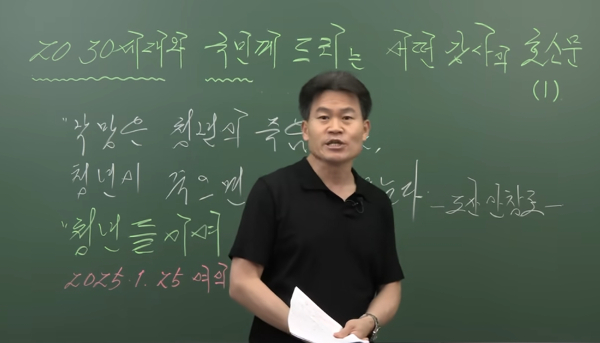 2030세대와 국민께 드리는 어떤 강사의 호소문
(1)
"낙망은 청년의 죽음
청년이 죽으면 - 도산 안창호 -
"청년들이여
2025. 1. 25 여의